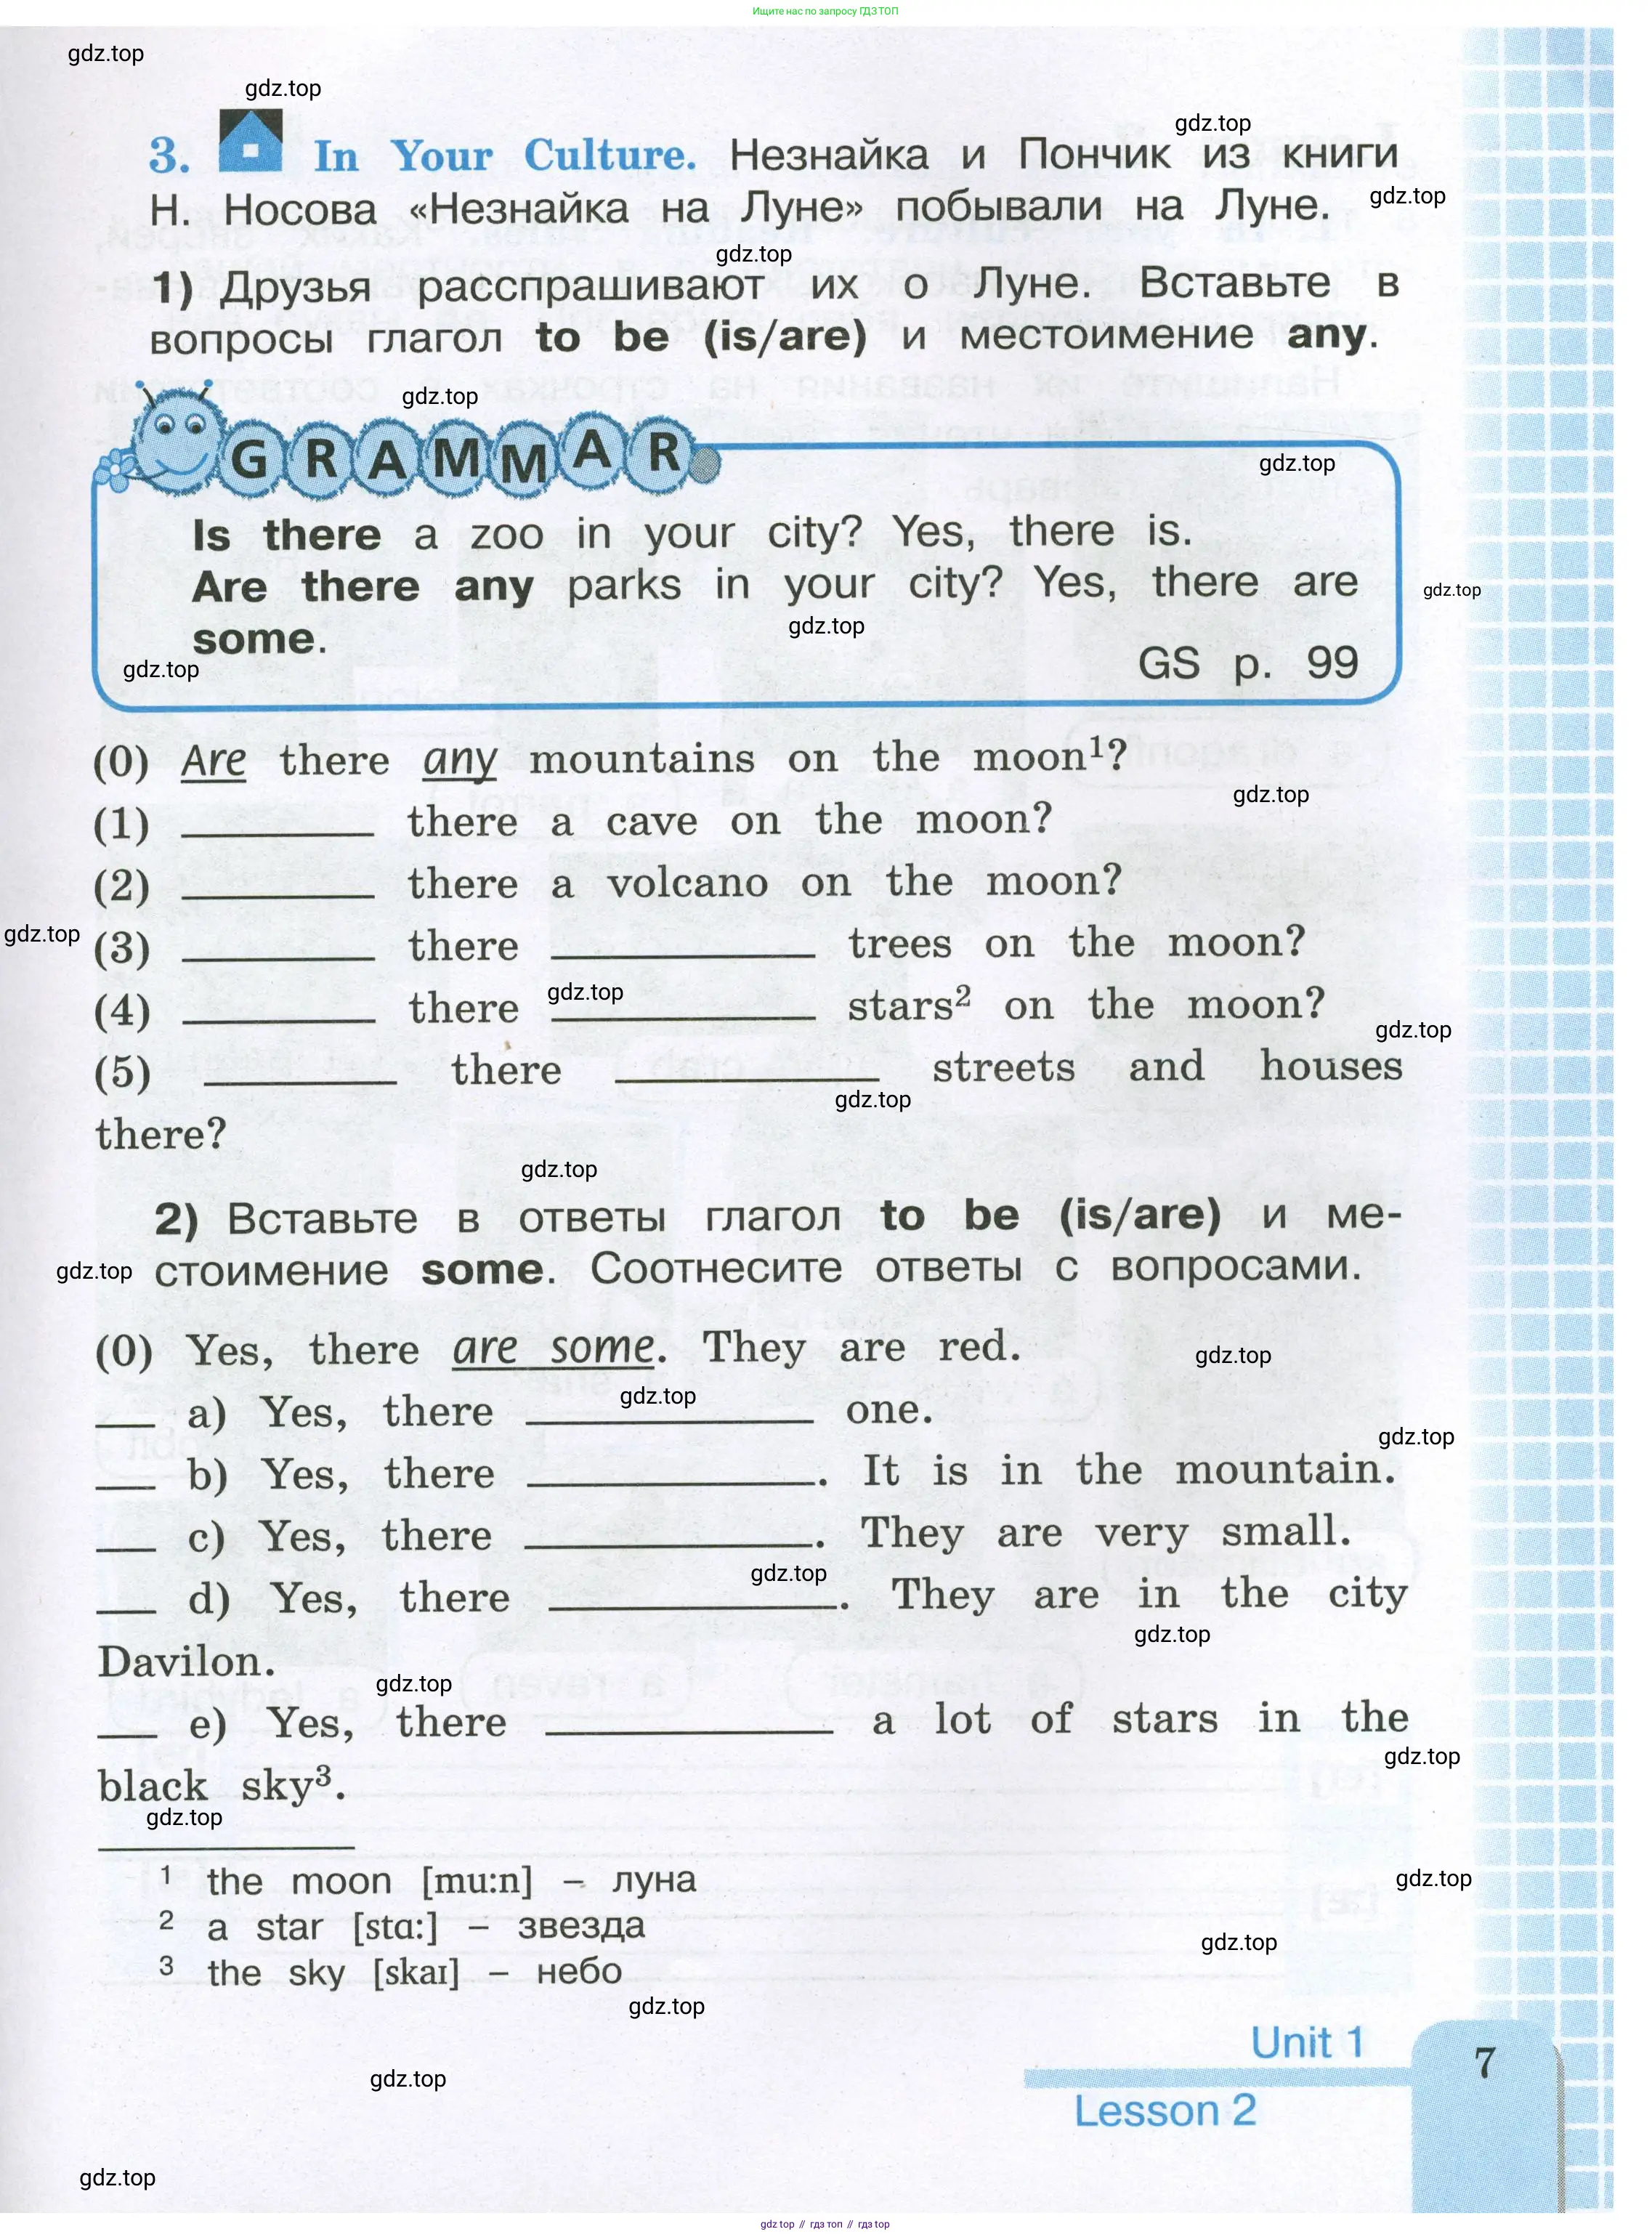 Ищите нас по запросу ГДЗ ТОП
gdz.top
gdz.top
gdz.top
3. In Your Culture. Незнайка и Пончик из книги
Н. Носова «Незнайка на Луне» побывали на Луне.
gdz.top
gdz.top
1) Друзья расспрашивают их о Луне. Вставьте в
вопросы глагол to be (is/are) и местоимение any.
gdz.top
GRAMMAR
gdz.top
Is there a zoo in your city? Yes, there is.
Are there any parks in your city? Yes, there are
gdz.top
some.
gdz.top
gdz.top
GS p. 99
(0) Are there any mountains on the moon¹?
gdz.top
(1) ________ there a cave on the moon?
(2) ________ there a volcano on the moon?
gdz.top
(3) ________ there ________ trees on the moon?
gdz.top
(4) ________ there ________ stars² on the moon?
gdz.top
(5) ________ there ________ streets and houses
gdz.top
there?
gdz.top
2) Вставьте в ответы глагол to be (is/are) и ме-
gdz.top
стоимение some. Соотнесите ответы с вопросами.
(0) Yes, there are some. They are red.
gdz.top
gdz.top
__ a) Yes, there ________ one.
gdz.top
__ b) Yes, there ________. It is in the mountain.
__ c) Yes, there ________. They are very small.
gdz.top
__ d) Yes, there ________. They are in the city
gdz.top
Davilon.
gdz.top
__ e) Yes, there ________ a lot of stars in the
gdz.top
black sky³.
gdz.top
¹ the moon [mu:n] – луна
gdz.top
² a star [stɑ:] – звезда
gdz.top
³ the sky [skaɪ] – небо
gdz.top
Unit 1
7
gdz.top
Lesson 2
gdz.top
gdz.top // гдз топ // гдз top